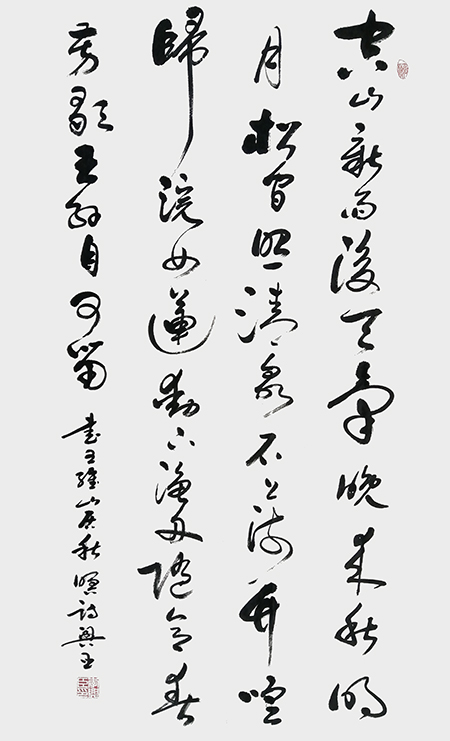 空山新雨後天氣晚來秋明
月松間照清泉石上流竹喧
歸浣女蓮動下漁舟隨意春
芳歇王孫自可留
書王維山居秋暝詩興